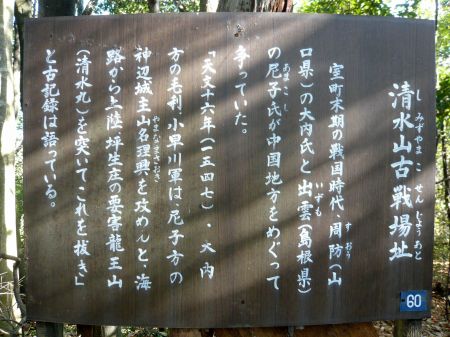 清水山古戦場址
しみずやまこせんじょうあと
室町末期の戦国時代、周防(山
すおう
口県)の大内氏と出雲(島根県)
いずも
の尼子氏が中国地方をめぐって
あまこし
争っていた。
「天文十六年(一五四七)、大内
方の毛利 小早川軍は尼子方の
神辺城主山名理興を攻めんと、海
やまなまさおき
路から上陸坪生庄の要害龍王山
(清水丸)を突いてこれを抜き」
と古記録は語っている。
60